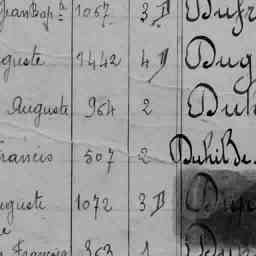 JeanBapte 1057 3 D Dufr
guste 1442 4 D Dug
Auguste 964 2 Duh
Francis 507 2 DuhiBe
uguste 1072 3 D
François 363 1